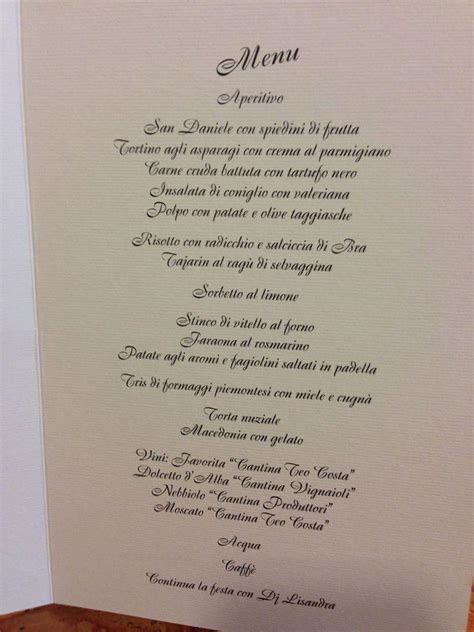 Menu
Aperitivo
San Daniele con spiedini di frutta
Tortino agli asparagi con crema al parmigiano
Carne cruda battuta con tartufo nero
Insalata di coniglio con valeriana
Polpo con patate e olive taggiasche
Risotto con radicchio e salciccia di Bra
Tajarin al ragù di selvaggina
Sorbetto al limone
Stinco di vitello al forno
Faraona al rosmarino
Patate agli aromi e fagiolini saltati in padella
Tris di formaggi piemontesi con miele e cugnà
Torta nuziale
Macedonia con gelato
Vini: Favorita “Cantina Teo Costa”
Dolcetto d'Alba “Cantina Vignaioli”
Nebbiolo “Cantina Produttori”
Moscato “Cantina Teo Costa”
Acqua
Caffè
Continua la festa con Dj Lisandra